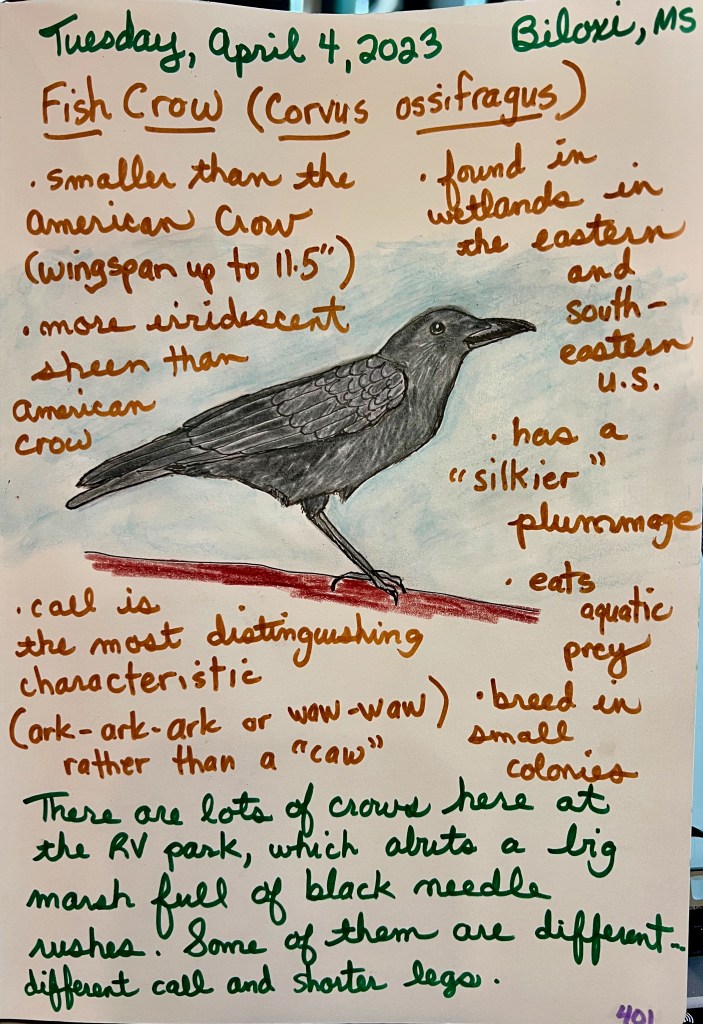 Tuesday, April 4, 2023
Biloxi, MS
Fish Crow (Corvus ossifragus)
· smaller than the
American Crow
(wingspan up to 11.5")
· more irridescent
sheen than
american
crow
· found in
wetlands in
the eastern
and
south-
eastern
u.s.
· has a
"silkier"
plummage
· eats
aquatic
prey
· breed in
small
colonies
· call is
the most distinguishing
characteristic
(ark-ark-ark or waw-waw)
rather than a "caw"
There are lots of crows here at
the RV park, which abuts a big
marsh full of black needle
rushes. Some of them are different...
different call and shorter legs.
401